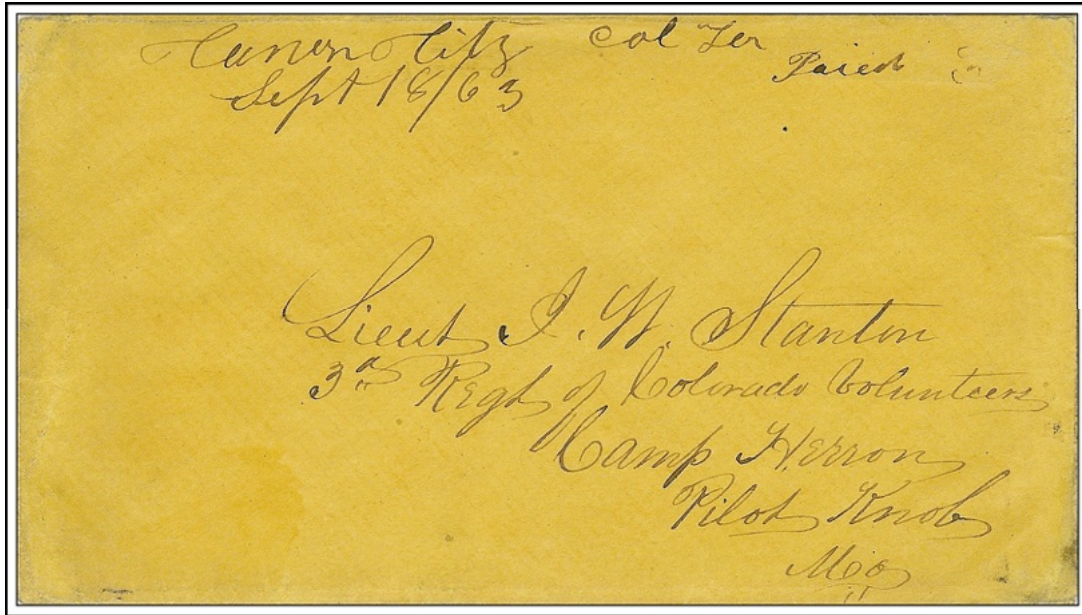 Canon City Col Ter Paied
Sept 18/63
Lieut I. W. Stanton
3d Regt of Colorado Volunteers
Camp Herron
Pilot Knob
Mo